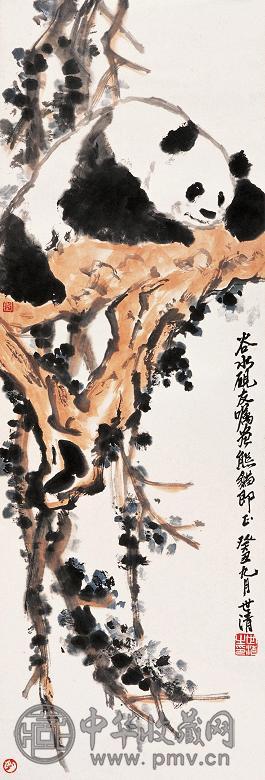 谷水硯友嘱画熊貓即正 癸丑九月 世清
中华收藏网
www.pmv.cn